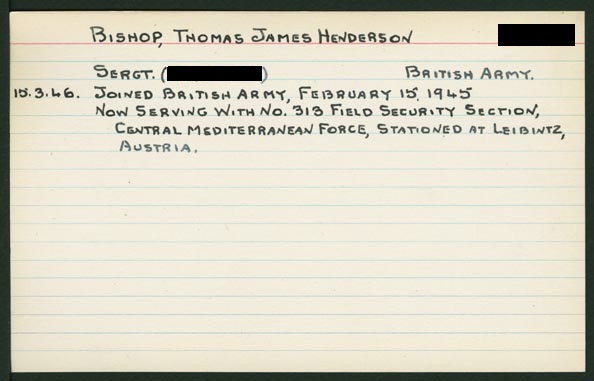 BISHOP, THOMAS JAMES HENDERSON
SERGT. ( ) BRITISH ARMY.
15.3.46. JOINED BRITISH ARMY, FEBRUARY 15, 1945
NOW SERVING WITH NO. 313 FIELD SECURITY SECTION,
CENTRAL MEDITERRANEAN FORCE, STATIONED AT LEIBINTZ,
AUSTRIA.